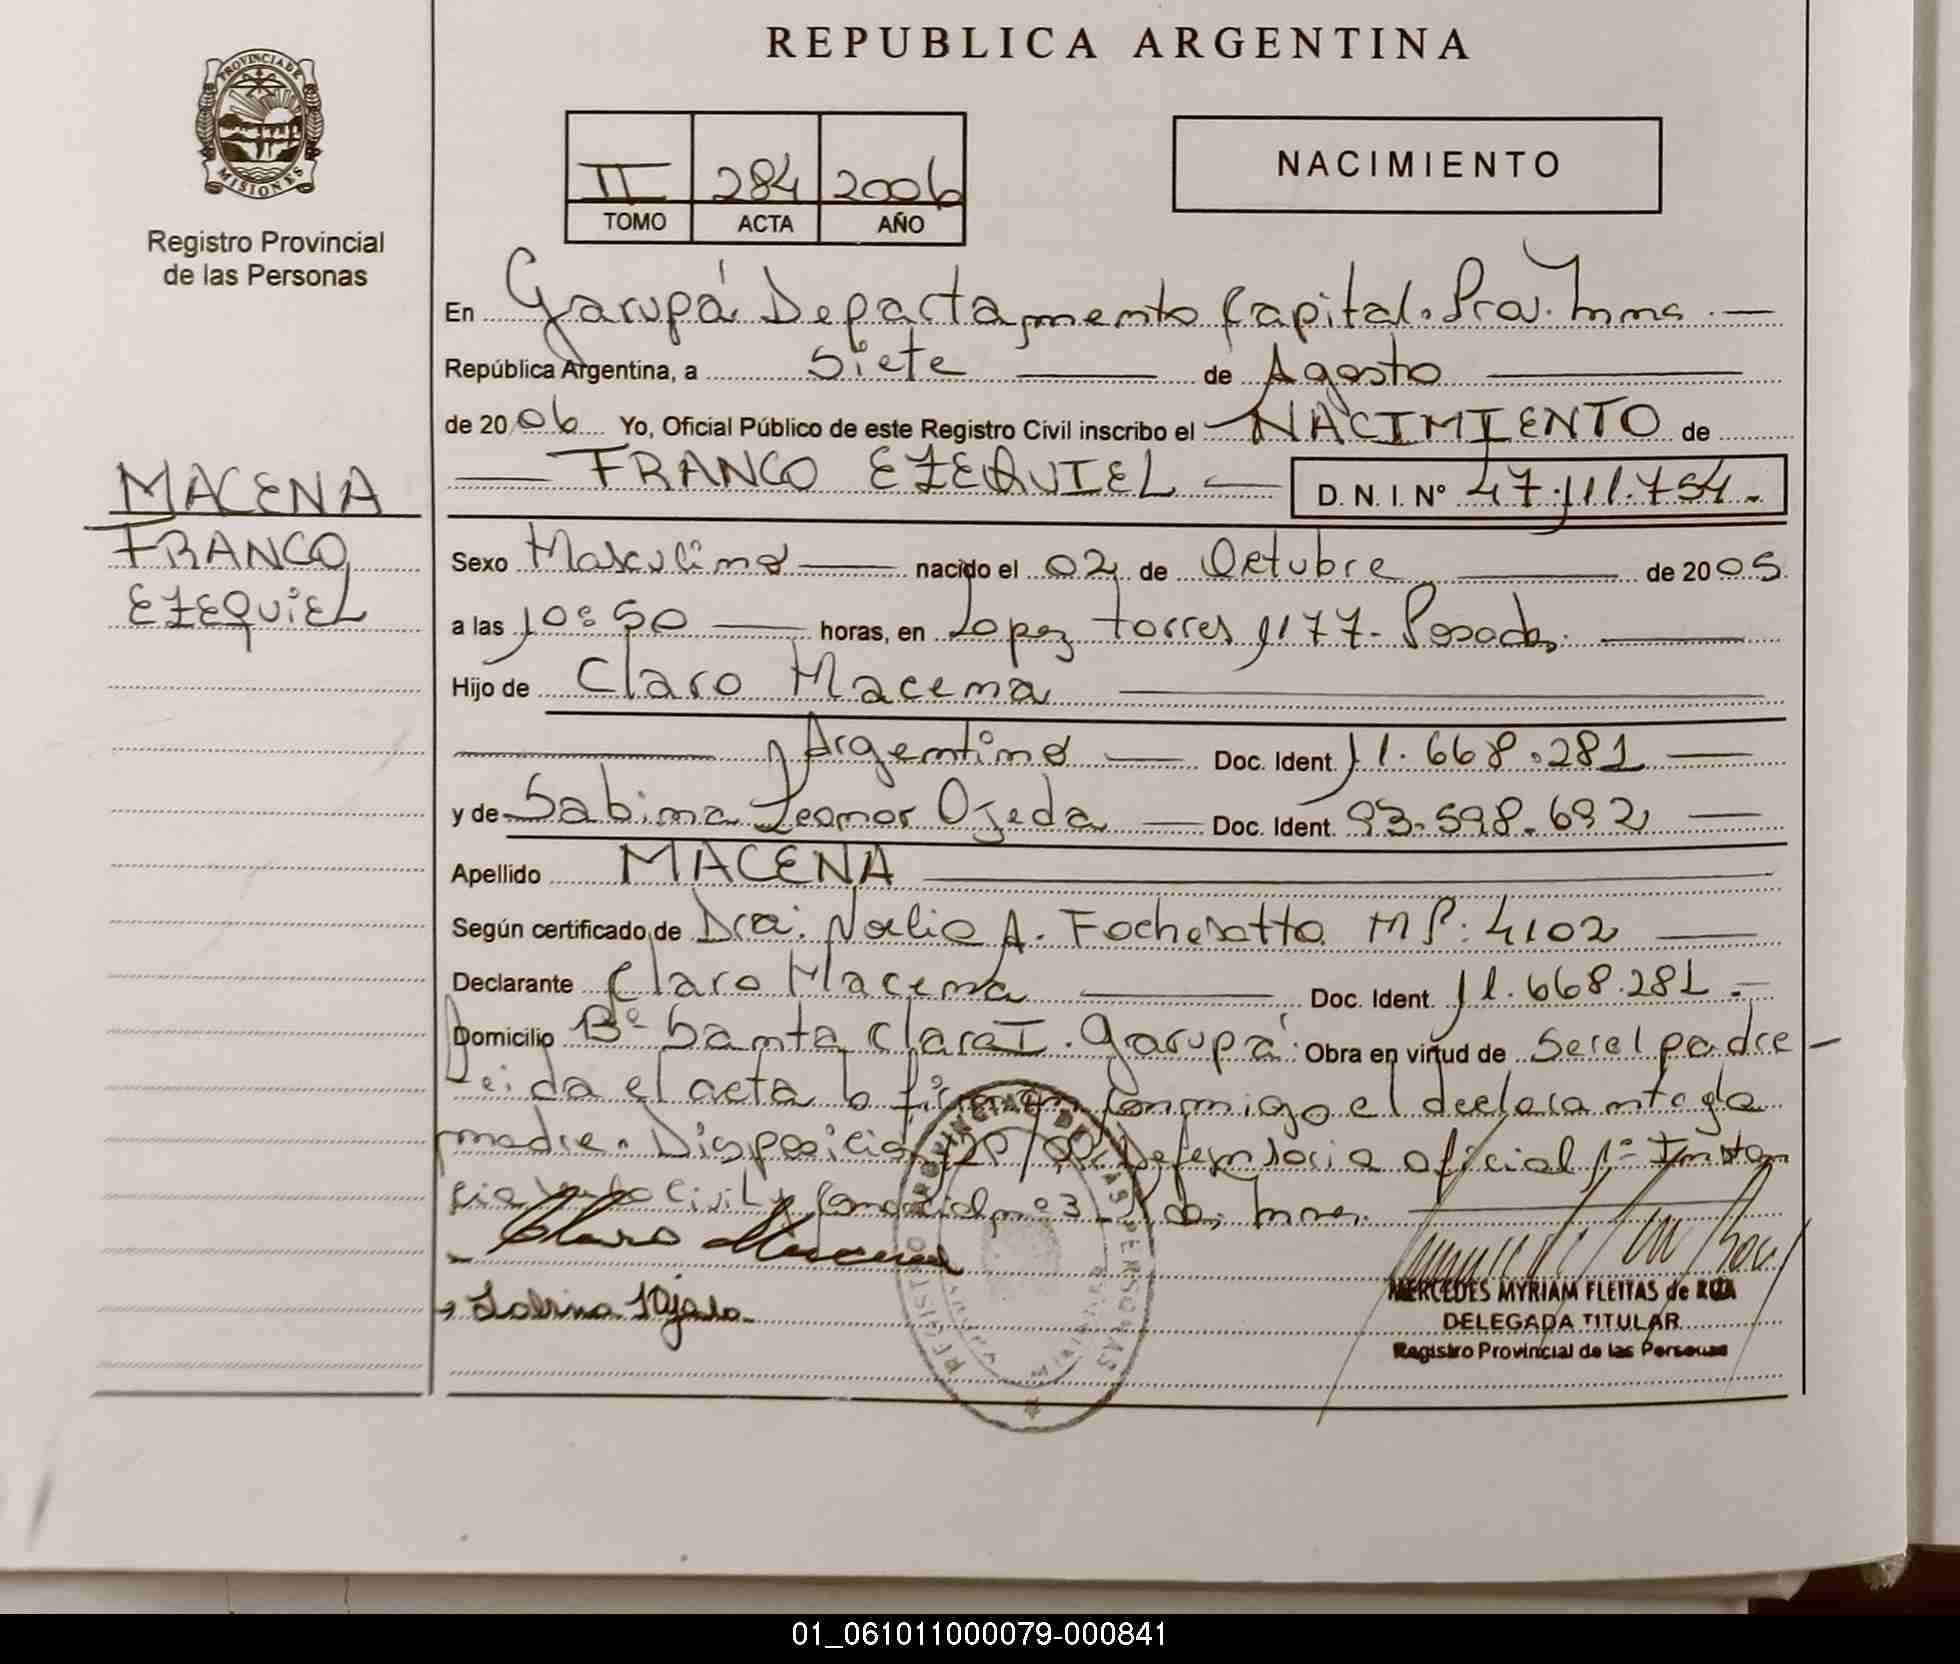 REPUBLICA ARGENTINA
PROVINCIA DE
MISIONES
Registro Provincial
de las Personas
II 284 2006
TOMO ACTA AÑO
NACIMIENTO
En Garupá Departamento Capital. Prov. Mnes.
República Argentina, a siete de Agosto
de 2006 Yo, Oficial Público de este Registro Civil inscribo el NACIMIENTO de
FRANCO EZEQUIEL D. N. I. Nº 47.111.754.
MACENA
FRANCO
EZEQUIEL
Sexo Masculino nacido el 02 de Octubre de 2005
a las 10:50 horas, en Lopez Torres 1177- Posadas.
Hijo de Claro Macena
Argentino Doc. Ident 11.668.281
y de Sabina Leonor Ojeda Doc. Ident. 93.598.692
Apellido MACENA
Según certificado de Dra. Noelia A. Fochesatto MP: 4102
Declarante Claro Macena Doc. Ident. 11.668.281.
Domicilio Bº Santa Clara I. Garupá. Obra en virtud de ser el padre
Leida el acta la firman conmigo el declarante y la
madre. Disposición Defensoria oficial 1º Instan
cia en lo Civil y Comercial nº 3 - Pdas, Mnes.
Claro Macena
Sabina Ojeda
REGISTRO PROVINCIAL DE LAS PERSONAS
MERCEDES MYRIAM FLEITAS de ROA
DELEGADA TITULAR
Registro Provincial de las Personas
01_061011000079-000841